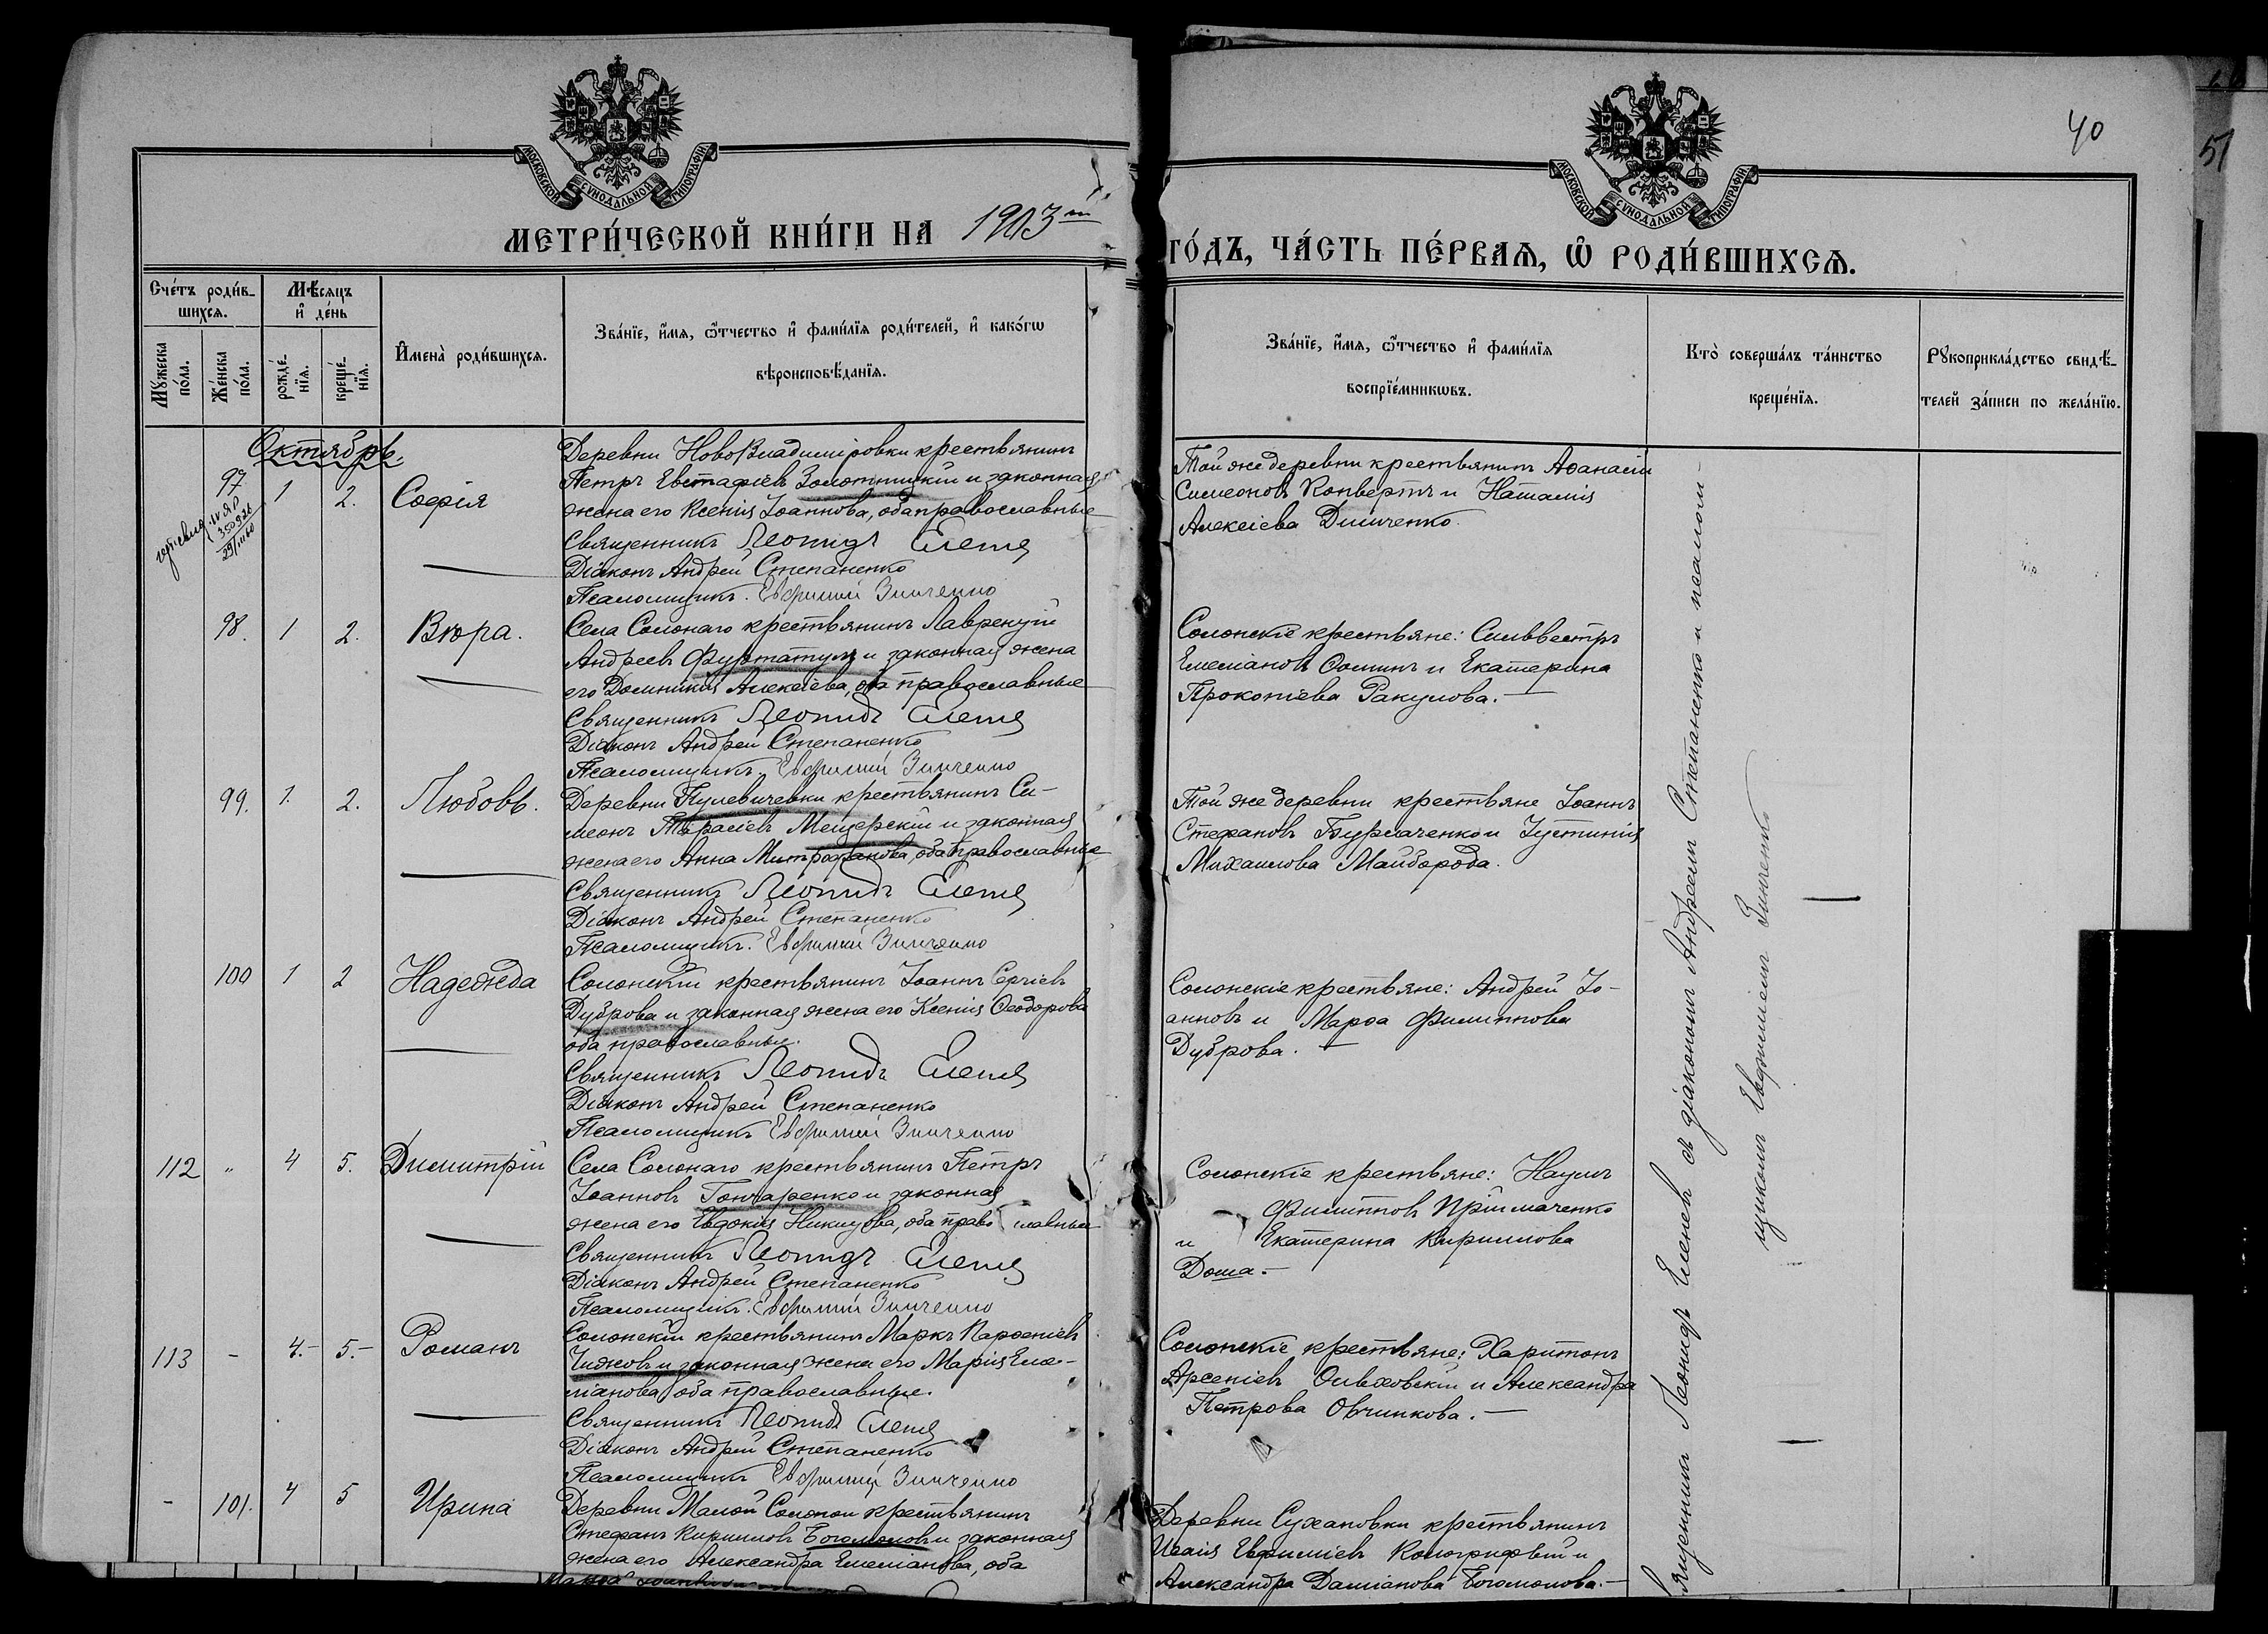 40
51
МОСКОВСКОЙ СѴНОДАЛЬНОЙ ТИПОГРАФІИ
МОСКОВСКОЙ СѴНОДАЛЬНОЙ ТИПОГРАФІИ
МЕТРИ́ЧЕСКОЙ КНИ́ГИ НА 1903 й
ГО́ДЪ, ЧА́СТЬ ПЕ́РВАѦ, Ѡ҆ РОДИ́ВШИХСѦ.
Сче́тъ роди́в-
шихсѧ.
Мѣ́сяцъ
и҆ де́нь
Мꙋ́жеска
по́ла.
Же́нска
по́ла.
рожде́-
нїѧ.
креще́-
нїѧ.
И҆мена̀ роди́вшихсѧ.
Зва́нїе, и҆́мѧ, ѻ҆́тчество и҆ фами́лїѧ роди́телей, и҆ како́гѡ
вѣроисповѣ́данїѧ.
Зва́нїе, и҆́мѧ, ѻ҆́тчество и҆ фами́лїѧ
воспрїе́мникѡвъ.
Кто̀ соверша́лъ та́инство
креще́нїѧ.
Рꙋкоприкла́дство свидѣ́-
телей за́писи по жела́нїю.
Октябрь.
97 1 2. Софія
Деревни НовоВладиміровки крестьянинъ
Петръ Евстафіевъ Золотницкій и законная
жена его Ксенія Іоаннова, оба православные
Священникъ Леонидъ Еленевъ
Діаконъ Андрей Степаненко
Псаломщикъ Евфимій Зинченко
Той же деревни крестьянинъ Аѳанасій
Симеоновъ Конвертъ и Наталія
Алексіева Димченко.
98. 1 2. Вѣра.
Села Солонаго крестьянинъ Лаврентій
Андреевъ и законная жена
его Домникія Алексіева, оба православные
Священникъ Леонидъ Еленевъ
Діаконъ Андрей Степаненко
Псаломщикъ Евфимій Зинченко
Солонскіе крестьяне: Сильвестръ
Емеліановъ Ѳоминъ и Екатерина
Прокопіева Ракулова.
99. 1. 2. Любовь.
Деревни Кулевичевки крестьянинъ Си-
меонъ Тарасіевъ Мещерскій и законная
жена его Анна Митрофанова, оба православные
Священникъ Леонидъ Еленевъ
Діаконъ Андрей Степаненко
Псаломщикъ. Евфимій Зинченко
Той же деревни крестьяне Іоаннъ
Стефановъ Бурмаченко и Іустинія
Михаилова Майборода.
100 1 2 Надежда
Солонскій крестьянинъ Іоаннъ Сергіевъ
Дуброва и законная жена его Ксенія Ѳеодорова
оба православные.
Священникъ Леонидъ Еленевъ
Діаконъ Андрей Степаненко
Псаломщикъ Евфимій Зинченко
Солонскіе крестьяне: Андрей Іо-
анновъ и Марѳа Филиппова
Дуброва.
112 " 4 5. Димитрій
Села Солонаго крестьянинъ Петръ
Іоанновъ Гончаренко и законная
жена его Евдокія Никитова, оба православные
Священникъ Леонидъ Еленевъ
Діаконъ Андрей Степаненко
Псаломщикъ. Евфимій Зинченко
Солонскіе крестьяне: Наумъ
Филипповъ Пріймаченко
и Екатерина Кириллова
Доша.
113 - 4.- 5.- Романъ
Солонскій крестьянинъ Маркъ Парѳеніевъ
Чижовъ и законная жена его Марія Еме-
ліанова, оба православные.
Священникъ Леонидъ Еленевъ
Діаконъ Андрей Степаненко
Псаломщикъ Евфимій Зинченко
Солонскіе крестьяне: Харитонъ
Арсеніевъ Ольховскій и Александра
Петрова Овчинкова.
- 101. 4 5 Ирина
Деревни Малой Солоной крестьянинъ
Стефанъ Кирилловъ Богомоловъ и законная
жена его Александра Емеліанова, оба
Деревни Сухановки крестьянинъ
Исаія Евфиміевъ и
Александра Даміанова Богомолова.
Священникъ Леонидъ Еленевъ съ діакономъ Андреемъ Степаненко и псалом-
щикомъ Евфиміемъ Зинченко